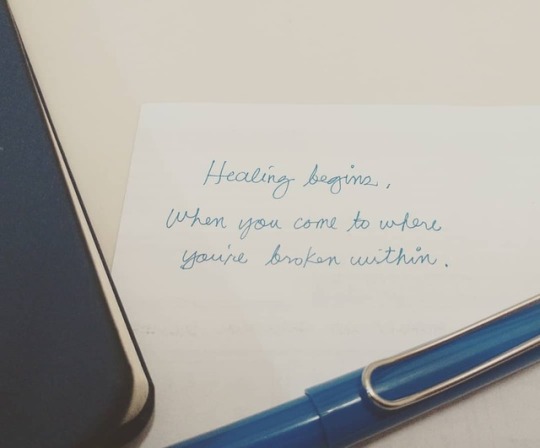 Healing begins,
When you come to where
you're broken within.